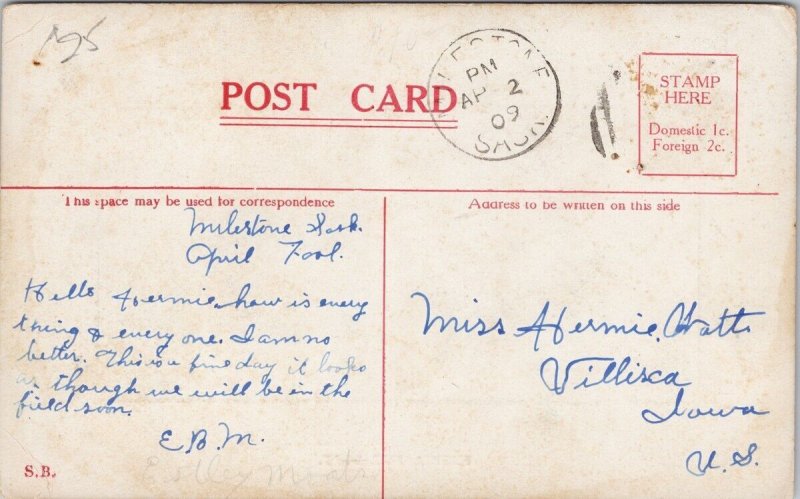 195
POST CARD
MILESTONE
PM
AP 2
09
SASK.
STAMP
HERE
Domestic 1c.
Foreign 2c.
This space may be used for correspondence
Address to be written on this side
Milestone Sask.
April Fool.
Hello Hermie, how is every
thing & every one. I am no
better. This is a fine day it looks
as though we will be in the
field soon.
E.B.M.
Miss Hermie Watts
Villisca
Iowa
U.S.
S.B.